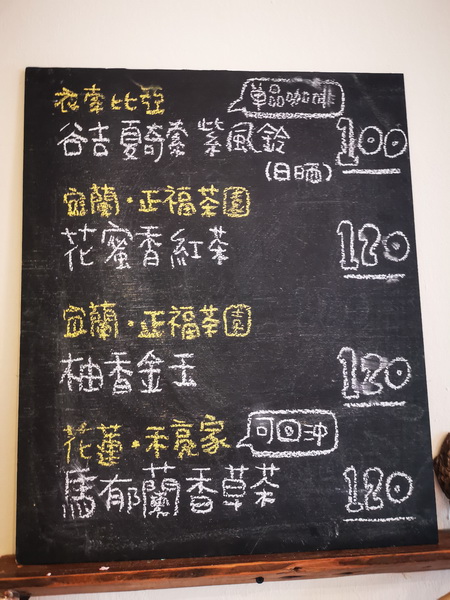 衣索比亞 單品咖啡
谷吉夏奇索 紫風鈴 100
(日晒)
宜蘭·正福茶園
花蜜香紅茶 120
宜蘭·正福茶園
柚香金玉 120
花蓮·禾亮家 可回沖
馬郁蘭香草茶 120